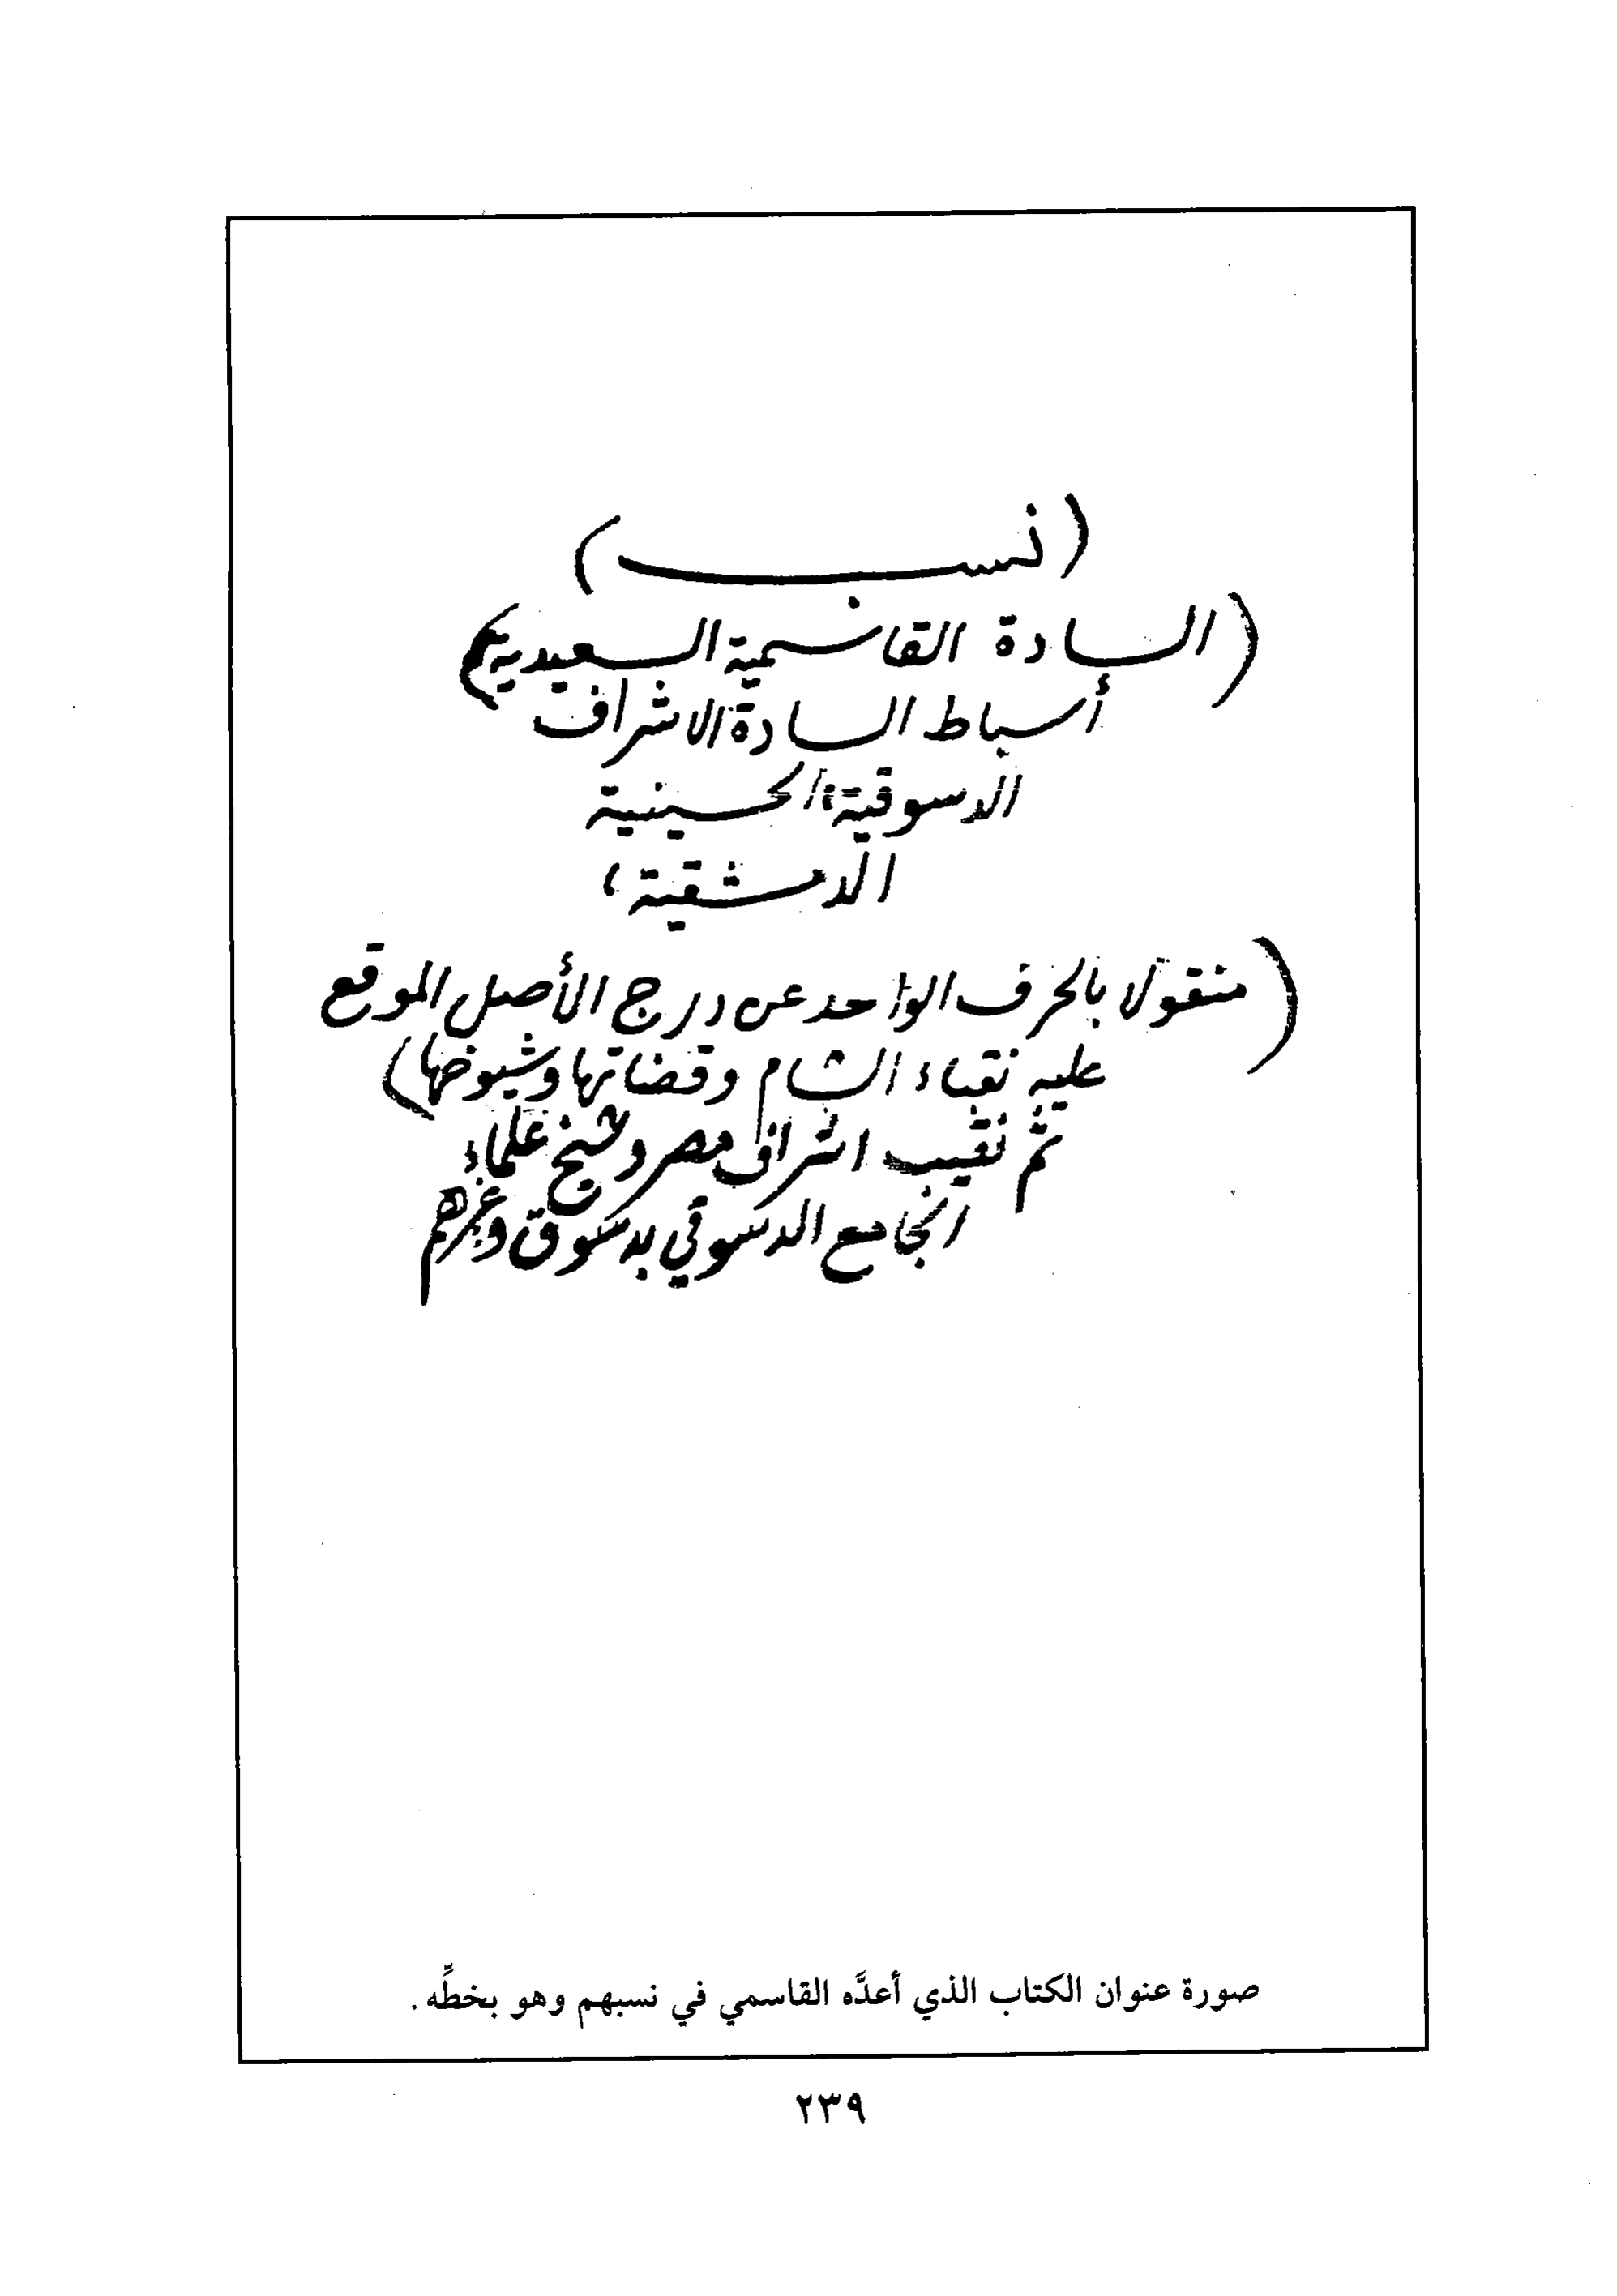 (نسب)
(السادة القاسمية السعيدية)
أسباط السادة الاشراف
الدسوقية الحسينية
الدمشقية،
(منقولا بالحرف الواحد عن درج الأصل الموقع
عليه نقباء الشام وقضاتها وشيوخها)
ثم نقيب اشراف مصر وشيخ علماء
الجامع الدسوقي بدسوق وغيرهم
صورة عنوان الكتاب الذي أعدَّه القاسمي في نسبهم وهو بخطِّه.
٢٣٩